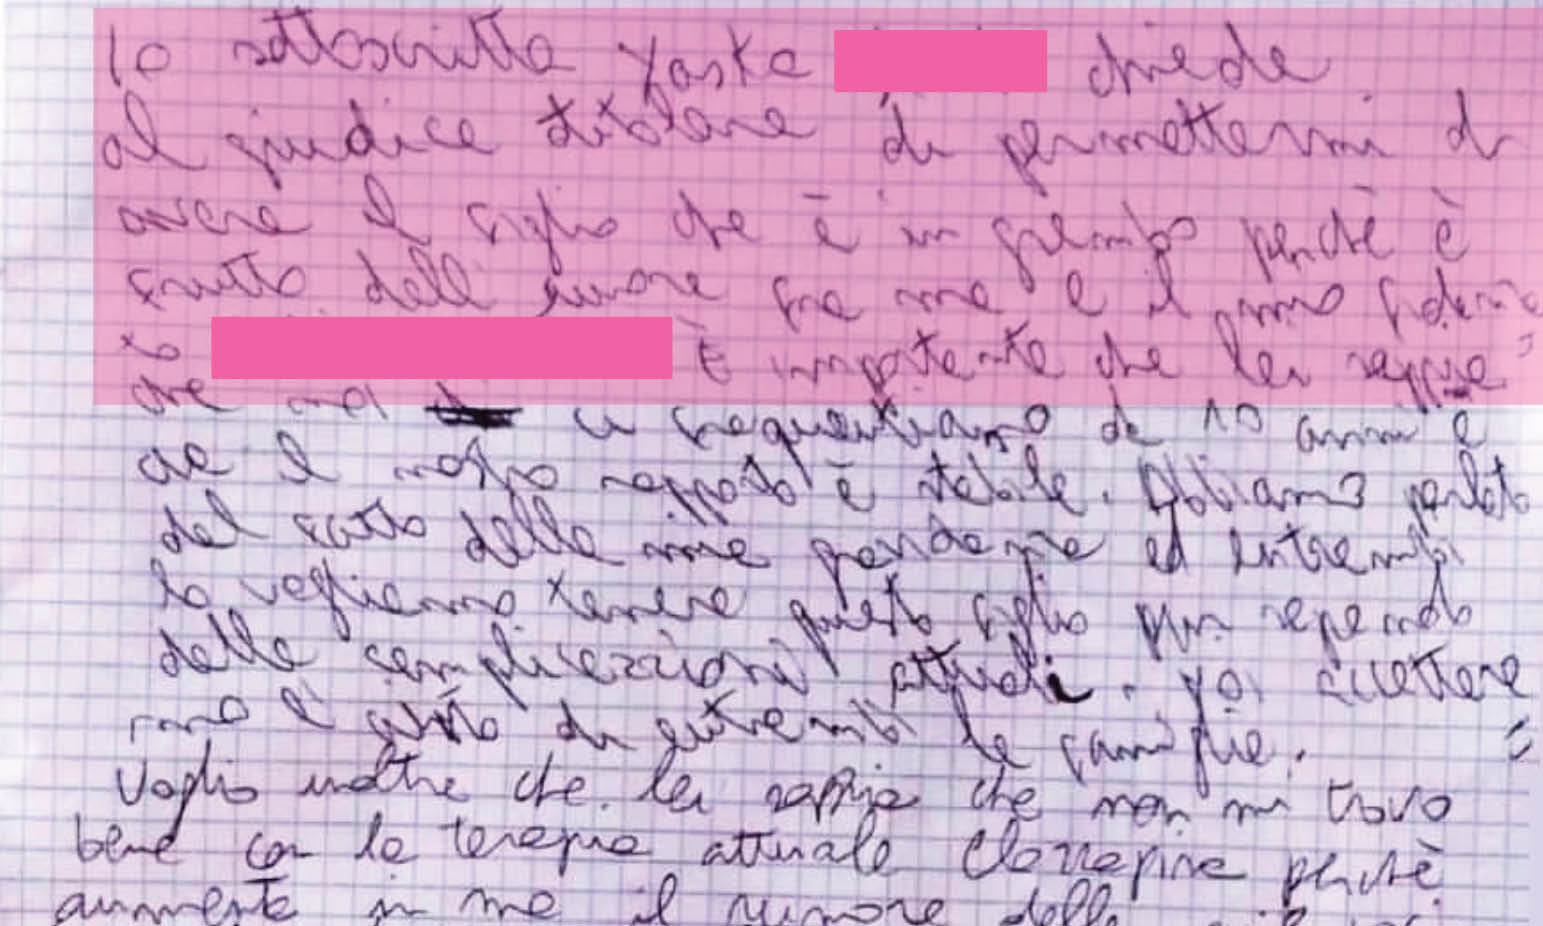 Io sottoscritta Yaska chiede
al giudice titolare di permettermi di
avere il figlio che è in grembo perché è
frutto dell amore fra me e il mio fidanza
to È importante che lei sappia
che noi ci frequentiamo da 10 anni e
che il nostro rapporto è stabile. Abbiamo parlato
del fatto della mia gravidanza ed entrambi
lo vogliamo tenere questo figlio pur sapendo
delle complicazioni attuali. Poi accettere
mo l'aiuto di entrambi le famiglie.
Voglio inoltre che lei sappia che non mi trovo
bene con la terapia attuale Clozapina perché
aumenta in me il rumore delle